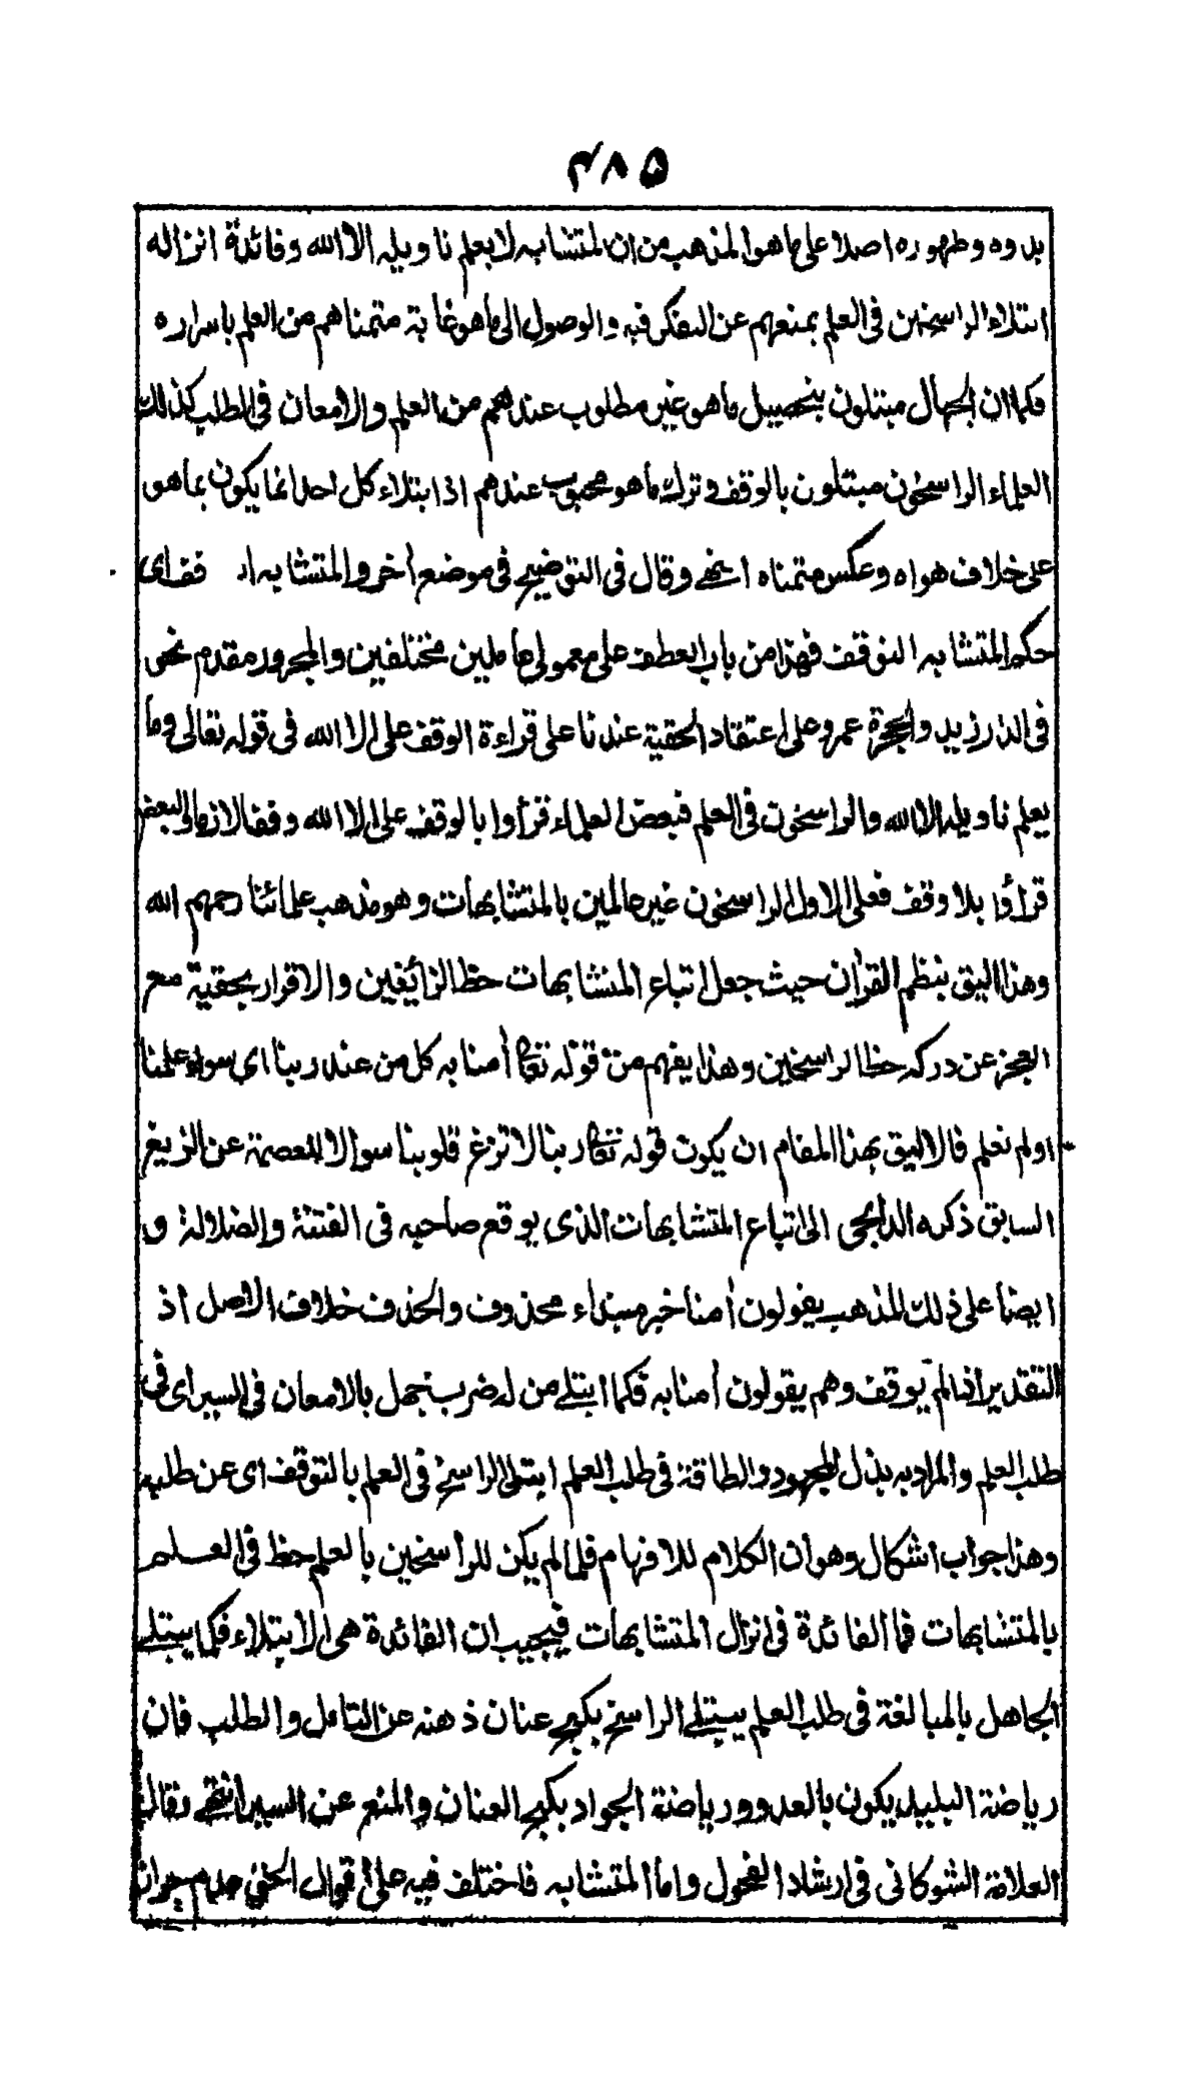 ۴۸۵
بدوه وظهوره اصلا على ما هو المذهب من ان المتشابه لا يعلم تاويله الا الله وفائدة انزاله
ابتلاء الراسخين فى العلم بمنعهم عن التفكر فيه والوصول الى ما هو غاية متمناهم من العلم باسراره
فكما ان الجهال مبتلون بتحصيل ما هو غير مطلوب عندهم من العلم والامعان فى الطلب كذلك
العلماء الراسخون مبتلون بالوقف وترك ما هو محبوب عندهم اذ ابتلاء كل احد انما يكون بما هو
على خلاف هواه وعكس متمناه انتهى وقال فى التوضيح فى موضع أخر والمتشابه اى فف اى
حكم المتشابه التوقف فهذا من باب العطف على معمولى عاملين مختلفين والمجرور مقدم نحو
فى الدار زيد والحجرة عمرو على اعتقاد الحقية عندنا على قراءة الوقف على الا الله فى قوله تعالى وما
يعلم تاويله الا الله والراسخون فى العلم فبعض العلماء قرأوا بالوقف على الا الله وقفا لازما والبعض
قرأوا بلا وقف فعلى الاول الراسخون غير عالمين بالمتشابهات وهو مذهب علمائنا رحمهم الله
وهذا اليق بنظم القران حيث جعل اتباع المتشابهات حظ الزائغين والاقرار بحقيته مع
العجز عن دركه حظ الراسخين وهذا يفهم من قوله تعالى أمنا به كل من عند ربنا اى سواء علمنا
اولم نعلم فالاليق بهذا المقام ان يكون قوله تعالى ربنا لا تزغ قلوبنا سوالا للعصمة عن الزيغ
السابق ذكره الداعى الى اتباع المتشابهات الذى يوقع صاحبه فى الفتنة والضلالة و
ايضا على ذلك المذهب يقولون أمنا خبر مبتداء محذوف والحذف خلاف الاصل اذ
التقدير اذا لم يوقف وهم يقولون أمنا به فكما ابتلى من له ضرب جهل بالامعان فى السير اى فى
طلب العلم والمراد به بذل المجهود والطاقة فى طلب العلم ابتلى الراسخ فى العلم بالتوقف اى عن طلبه
وهذا جواب اشكال وهو ان الكلام للافهام فلما لم يكن للراسخين بالعلم حظ فى العلم
بالمتشابهات فما الفائدة فى انزال المتشابهات فيجيب ان الفائدة هى الابتلاء فكما يبتلى
الجاهل بالمبالغة فى طلب العلم يبتلى الراسخ بكبح عنان ذهنه عن التامل والطلب فان
رياضة البليد يكون بالعدو ورياضة الجواد بكبح العنان والمنع عن السير انتهى وقال
العلامة الشوكانى فى ارشاد الفحول واما المتشابه فاختلف فيه على اقوال